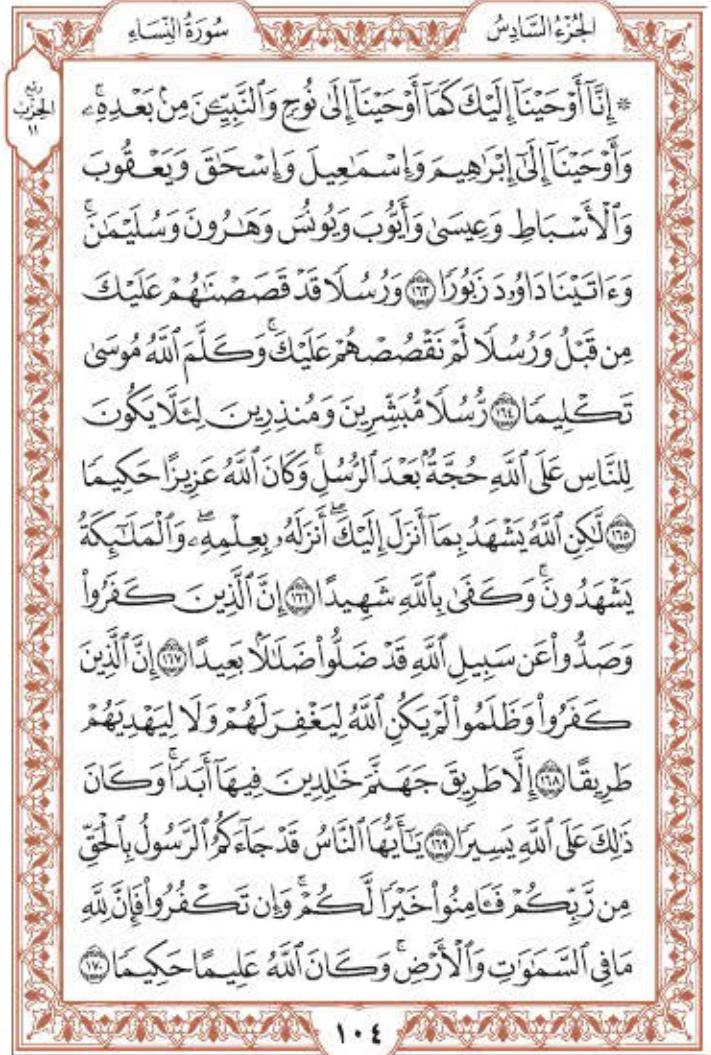 الجُزْءُ السَّادِسُ
سُورَةُ النِّسَاءِ
رُبْع
الحِزْب
١١
۞ إِنَّآ أَوْحَيْنَآ إِلَيْكَ كَمَآ أَوْحَيْنَآ إِلَىٰ نُوحٖ وَٱلنَّبِيِّـۧنَ مِنۢ بَعْدِهِۦۚ
وَأَوْحَيْنَآ إِلَىٰٓ إِبْرَٰهِيمَ وَإِسْمَٰعِيلَ وَإِسْحَٰقَ وَيَعْقُوبَ
وَٱلْأَسْبَاطِ وَعِيسَىٰ وَأَيُّوبَ وَيُونُسَ وَهَٰرُونَ وَسُلَيْمَٰنَۚ
وَءَاتَيْنَا دَاوُۥدَ زَبُورٗا ١٦٣ وَرُسُلٗا قَدْ قَصَصْنَٰهُمْ عَلَيْكَ
مِن قَبْلُ وَرُسُلٗا لَّمْ نَقْصُصْهُمْ عَلَيْكَۚ وَكَلَّمَ ٱللَّهُ مُوسَىٰ
تَكْلِيمٗا ١٦٤ رُّسُلٗا مُّبَشِّرِينَ وَمُنذِرِينَ لِئَلَّا يَكُونَ
لِلنَّاسِ عَلَى ٱللَّهِ حُجَّةُۢ بَعْدَ ٱلرُّسُلِۚ وَكَانَ ٱللَّهُ عَزِيزًا حَكِيمٗا
١٦٥ لَّٰكِنِ ٱللَّهُ يَشْهَدُ بِمَآ أَنزَلَ إِلَيْكَۖ أَنزَلَهُۥ بِعِلْمِهِۦۖ وَٱلْمَلَٰٓئِكَةُ
يَشْهَدُونَۚ وَكَفَىٰ بِٱللَّهِ شَهِيدًا ١٦٦ إِنَّ ٱلَّذِينَ كَفَرُوا۟
وَصَدُّوا۟ عَن سَبِيلِ ٱللَّهِ قَدْ ضَلُّوا۟ ضَلَٰلَۢا بَعِيدًا ١٦٧ إِنَّ ٱلَّذِينَ
كَفَرُوا۟ وَظَلَمُوا۟ لَمْ يَكُنِ ٱللَّهُ لِيَغْفِرَ لَهُمْ وَلَا لِيَهْدِيَهُمْ
طَرِيقًا ١٦٨ إِلَّا طَرِيقَ جَهَنَّمَ خَٰلِدِينَ فِيهَآ أَبَدٗاۚ وَكَانَ
ذَٰلِكَ عَلَى ٱللَّهِ يَسِيرٗا ١٦٩ يَٰٓأَيُّهَا ٱلنَّاسُ قَدْ جَآءَكُمُ ٱلرَّسُولُ بِٱلْحَقِّ
مِن رَّبِّكُمْ فَـَٔامِنُوا۟ خَيْرٗا لَّكُمْۚ وَإِن تَكْفُرُوا۟ فَإِنَّ لِلَّهِ
مَا فِى ٱلسَّمَٰوَٰتِ وَٱلْأَرْضِۚ وَكَانَ ٱللَّهُ عَلِيمًا حَكِيمٗا ١٧٠
١٠٤